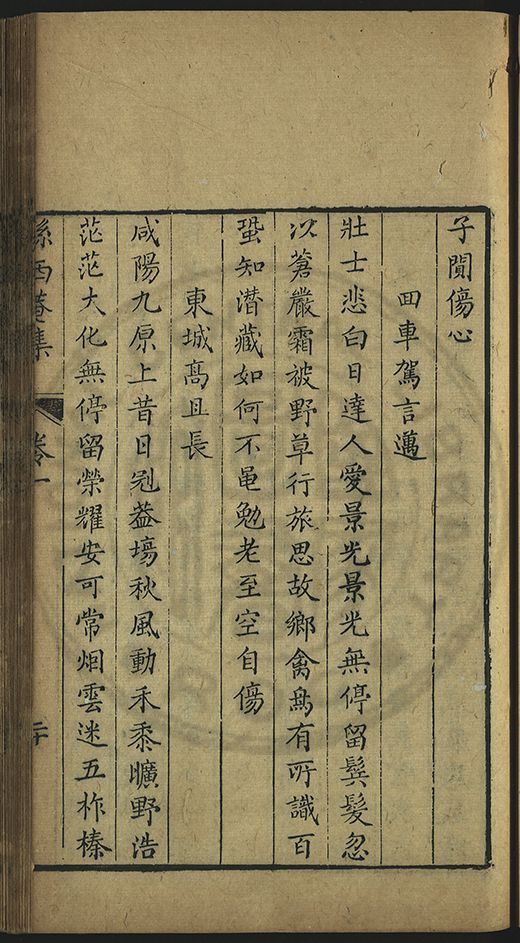 子聞傷心
回車駕言邁
壯士悲白日達人愛景光景光無停留鬂髮忽
以蒼嚴霜被野草行旅思故鄉禽鳥有所識百
蛩知潜藏如何不黽勉老至空自傷
東城髙且長
咸陽九原上昔日冠葢塲秋風動禾黍曠野浩
茫茫大化無停留榮耀安可常烟雲迷五柞榛
孫西菴集 卷一 二十